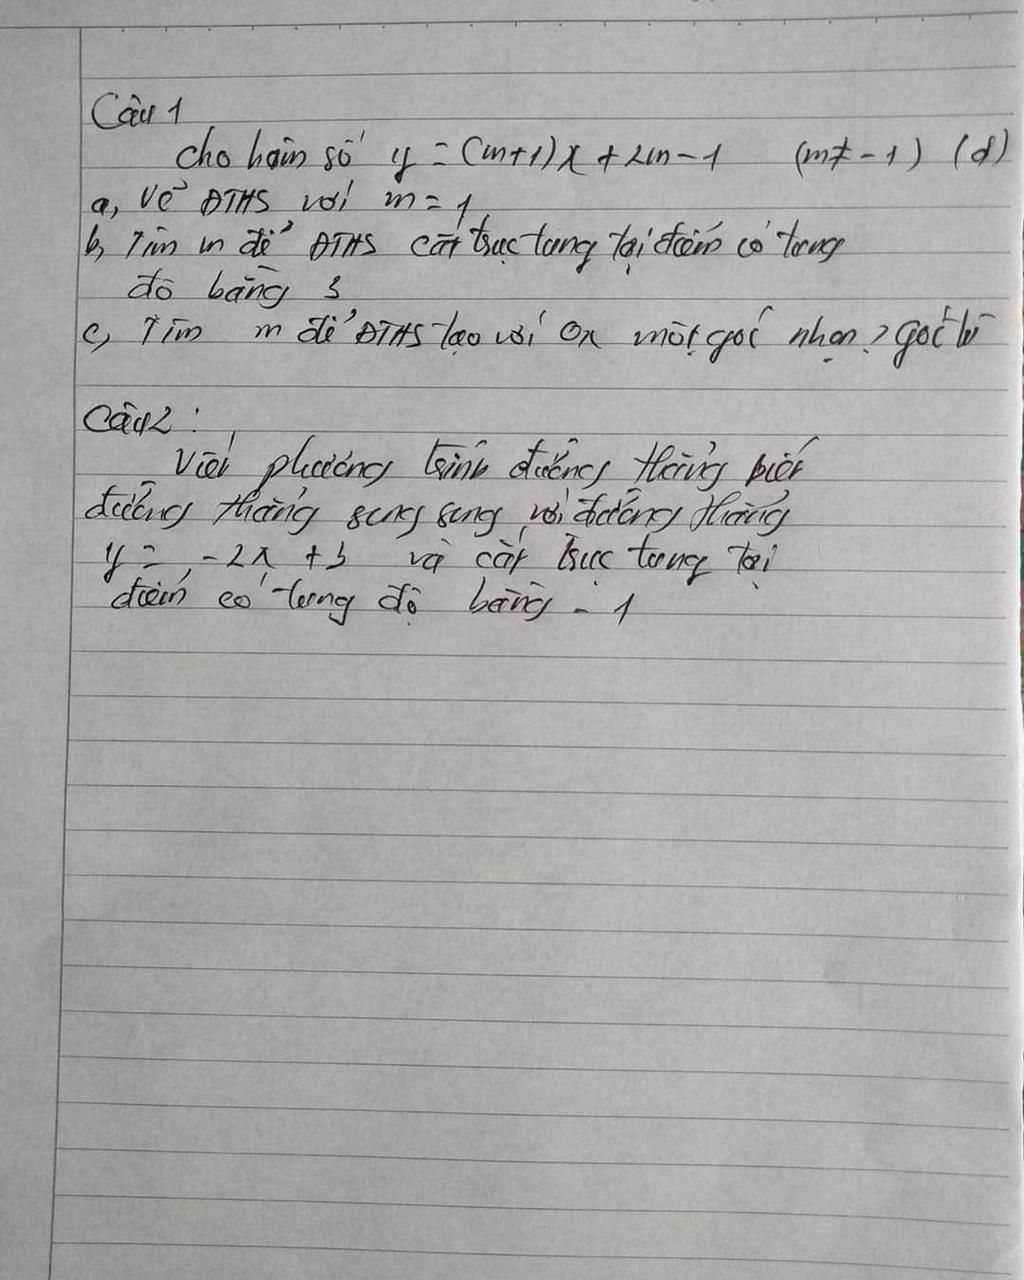 Câu 1
cho hàm số y = (m+1)x + 2m - 1 (m ≠ - 1) (d)
a, Vẽ ĐTHS với m = 1
b, Tìm m để ĐTHS cắt trục tung tại điểm có tung
độ bằng 3
c, Tìm m để ĐTHS tạo với Ox một góc nhọn? góc tù
Câu 2 :
Viết phương trình đường thẳng biết
đường thẳng song song với đường thẳng
y = -2x + 3 và cắt trục tung tại
điểm có tung độ bằng - 1